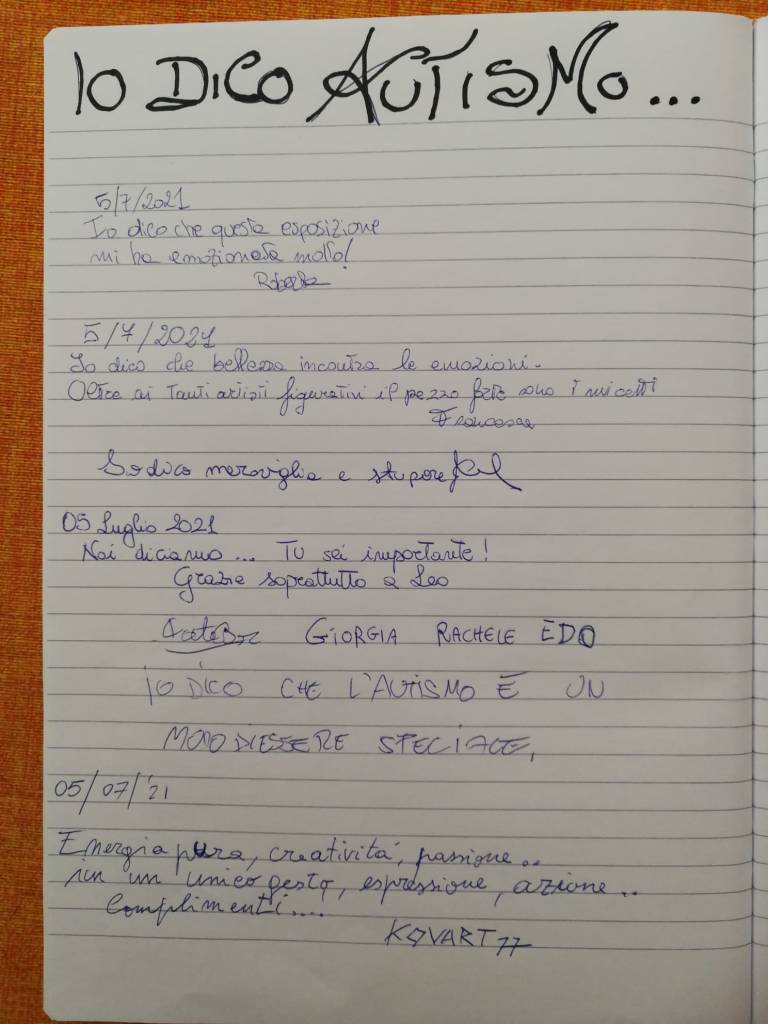 IO DICO AUTISMO...
5/7/2021
Io dico che questa esposizione
mi ha emozionata molto!
Roberta
5/7/2021
Io dico che bellezza incontra le emozioni.
Oltre ai tanti artisti figurativi il pezzo forte sono i micetti
Francesca
Io dico meraviglia e stupore
05 Luglio 2021
Noi diciamo... TU sei importante!
Grazie soprattutto a Leo
GIORGIA RACHELE EDO
IO DICO CHE L'AUTISMO È UN
MODO DI ESSERE SPECIALE,
05/07/'21
Energia pura, creatività, passione..
in un unico gesto, espressione, azione..
Complimenti....
KOVART77